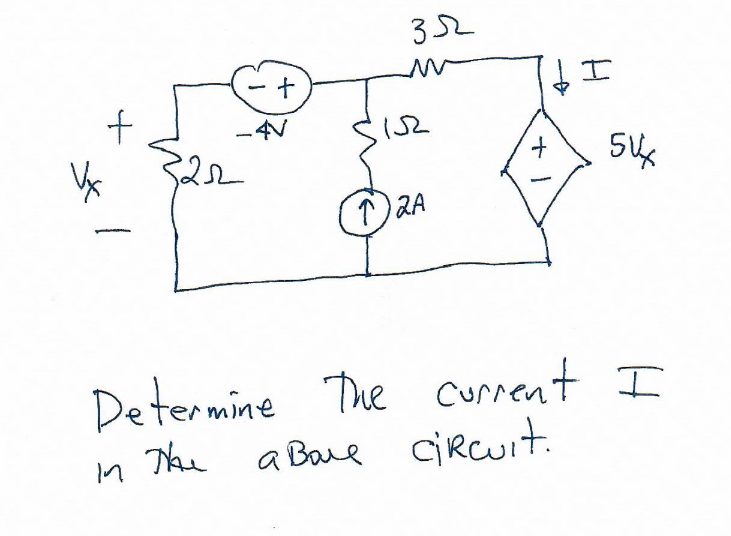 3Ω
- +
I
+
-4V
1Ω
+
5Vx
Vx
2Ω
-
2A
-
Determine The current I
in The aBove CiRcuit.